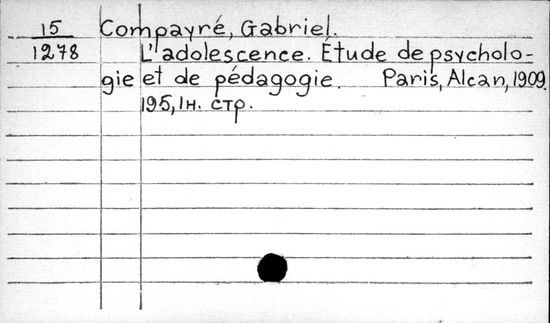 15 Compayré, Gabriel.
1278 L'adolescence. Étude de psycholo-
gie et de pédagogie. Paris, Alcan, 1909.
195, 1н. стр.